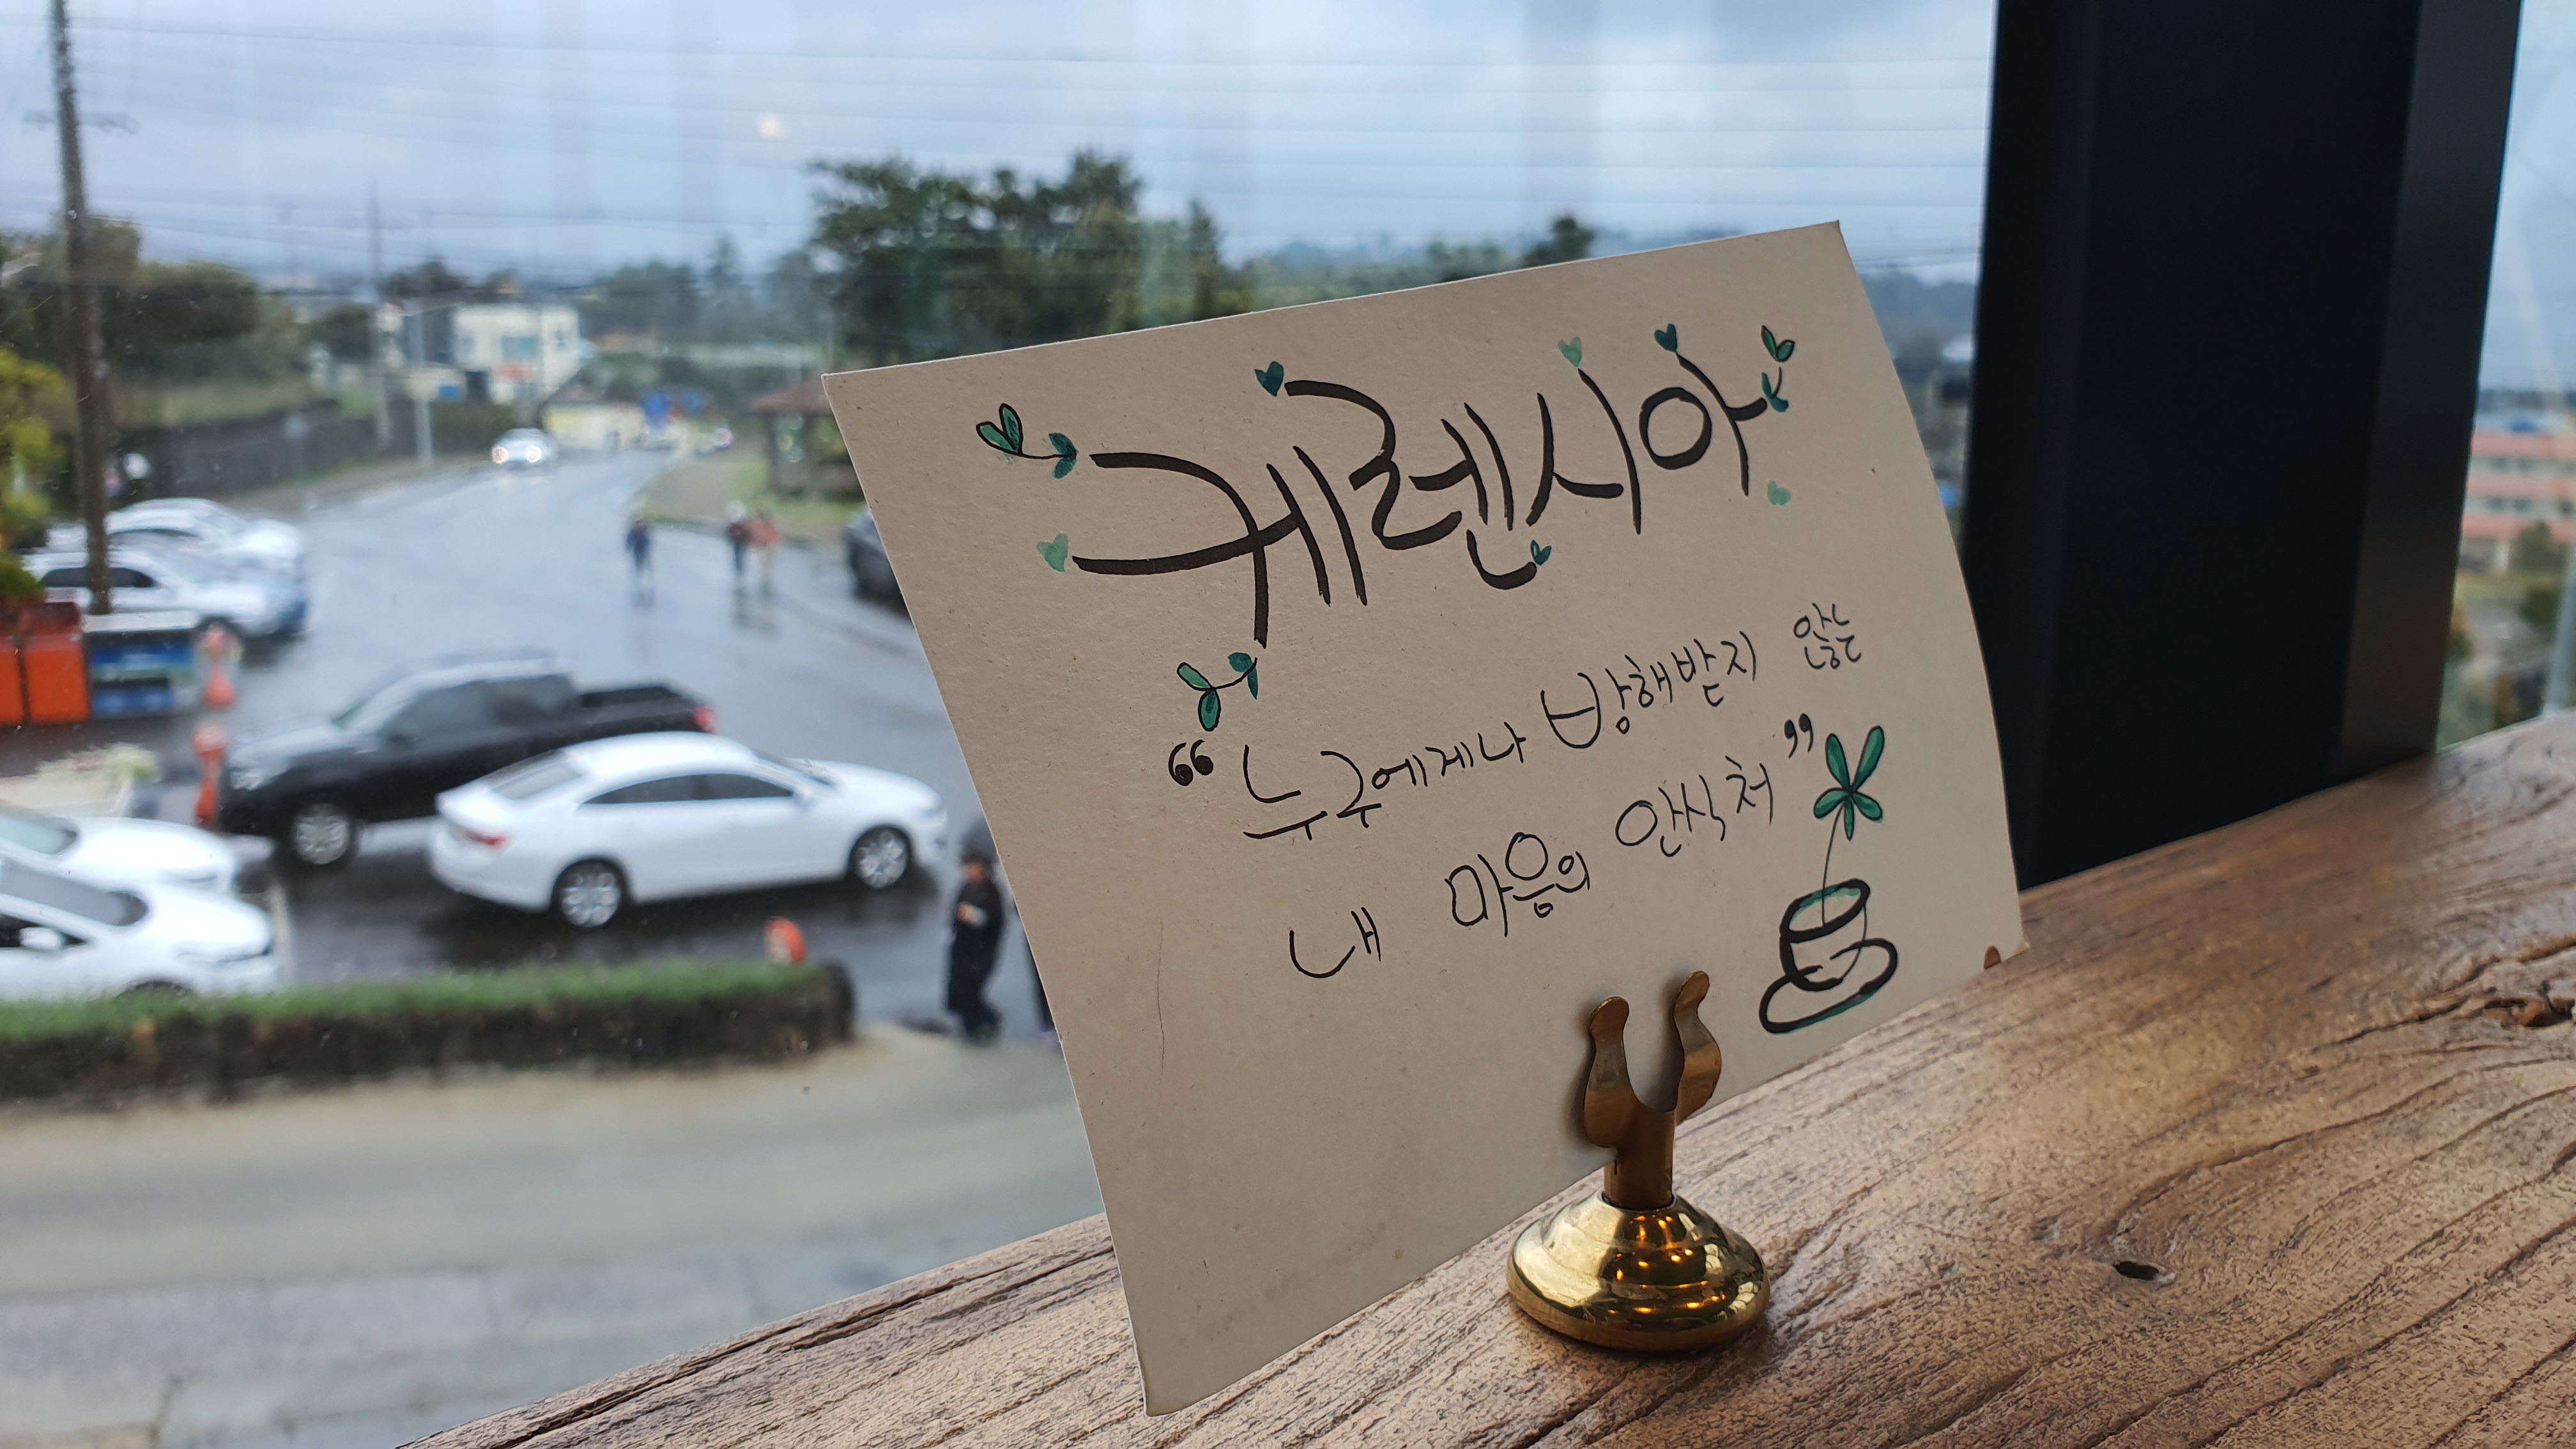 케렌시아
“누구에게나 방해받지 않는
내 마음의 안식처”